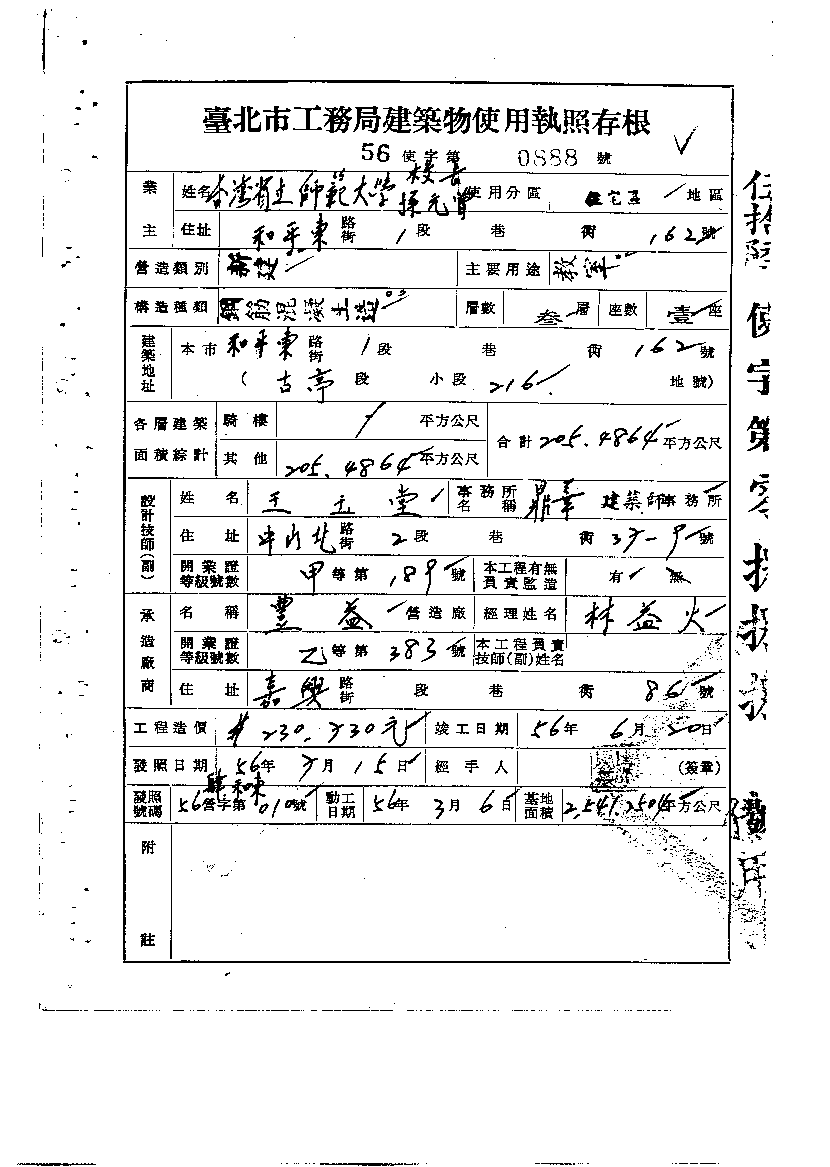 臺北市工務局建築物使用執照存根
56 使字第 0888 號
業主 姓名 台灣省立師範大學 校長 孫亢曾 使用分區 住宅區 地區
住址 和平東 路街 1 段 巷 衖 162 號
營造類別 新建 主要用途 教室
構造種類 鋼筋混凝土造 層數 叁 層 座數 壹 座
建築地址 本市 和平東 路街 1 段 巷 衖 162 號
( 古亭 段 小段 216 地號)
各層建築面積綜計 騎樓 平方公尺 合計 205.4864 平方公尺
其他 205.4864 平方公尺
設計技師(副) 姓名 王玉堂 事務所名稱 鼎華 建築師事務所
住址 中山北 路街 2 段 巷 衖 號
開業證等級號數 甲 等第 號 本工程有無負責監造 有 無
承造廠商 名稱 豐益 營造廠 經理姓名 林益火
開業證等級號數 乙 等第 383 號 本工程負責技師(副)姓名
住址 嘉興 路街 段 巷 衖 86 號
工程造價 元 竣工日期 56 年 6 月 20 日
發照日期 56 年 月 15 日 經手人 (簽章)
發照號碼 56 營字第 010 號 動工日期 56 年 3 月 6 日 基地面積 2,541.2501 平方公尺
附註
伍拾陸 使字第零捌捌捌號